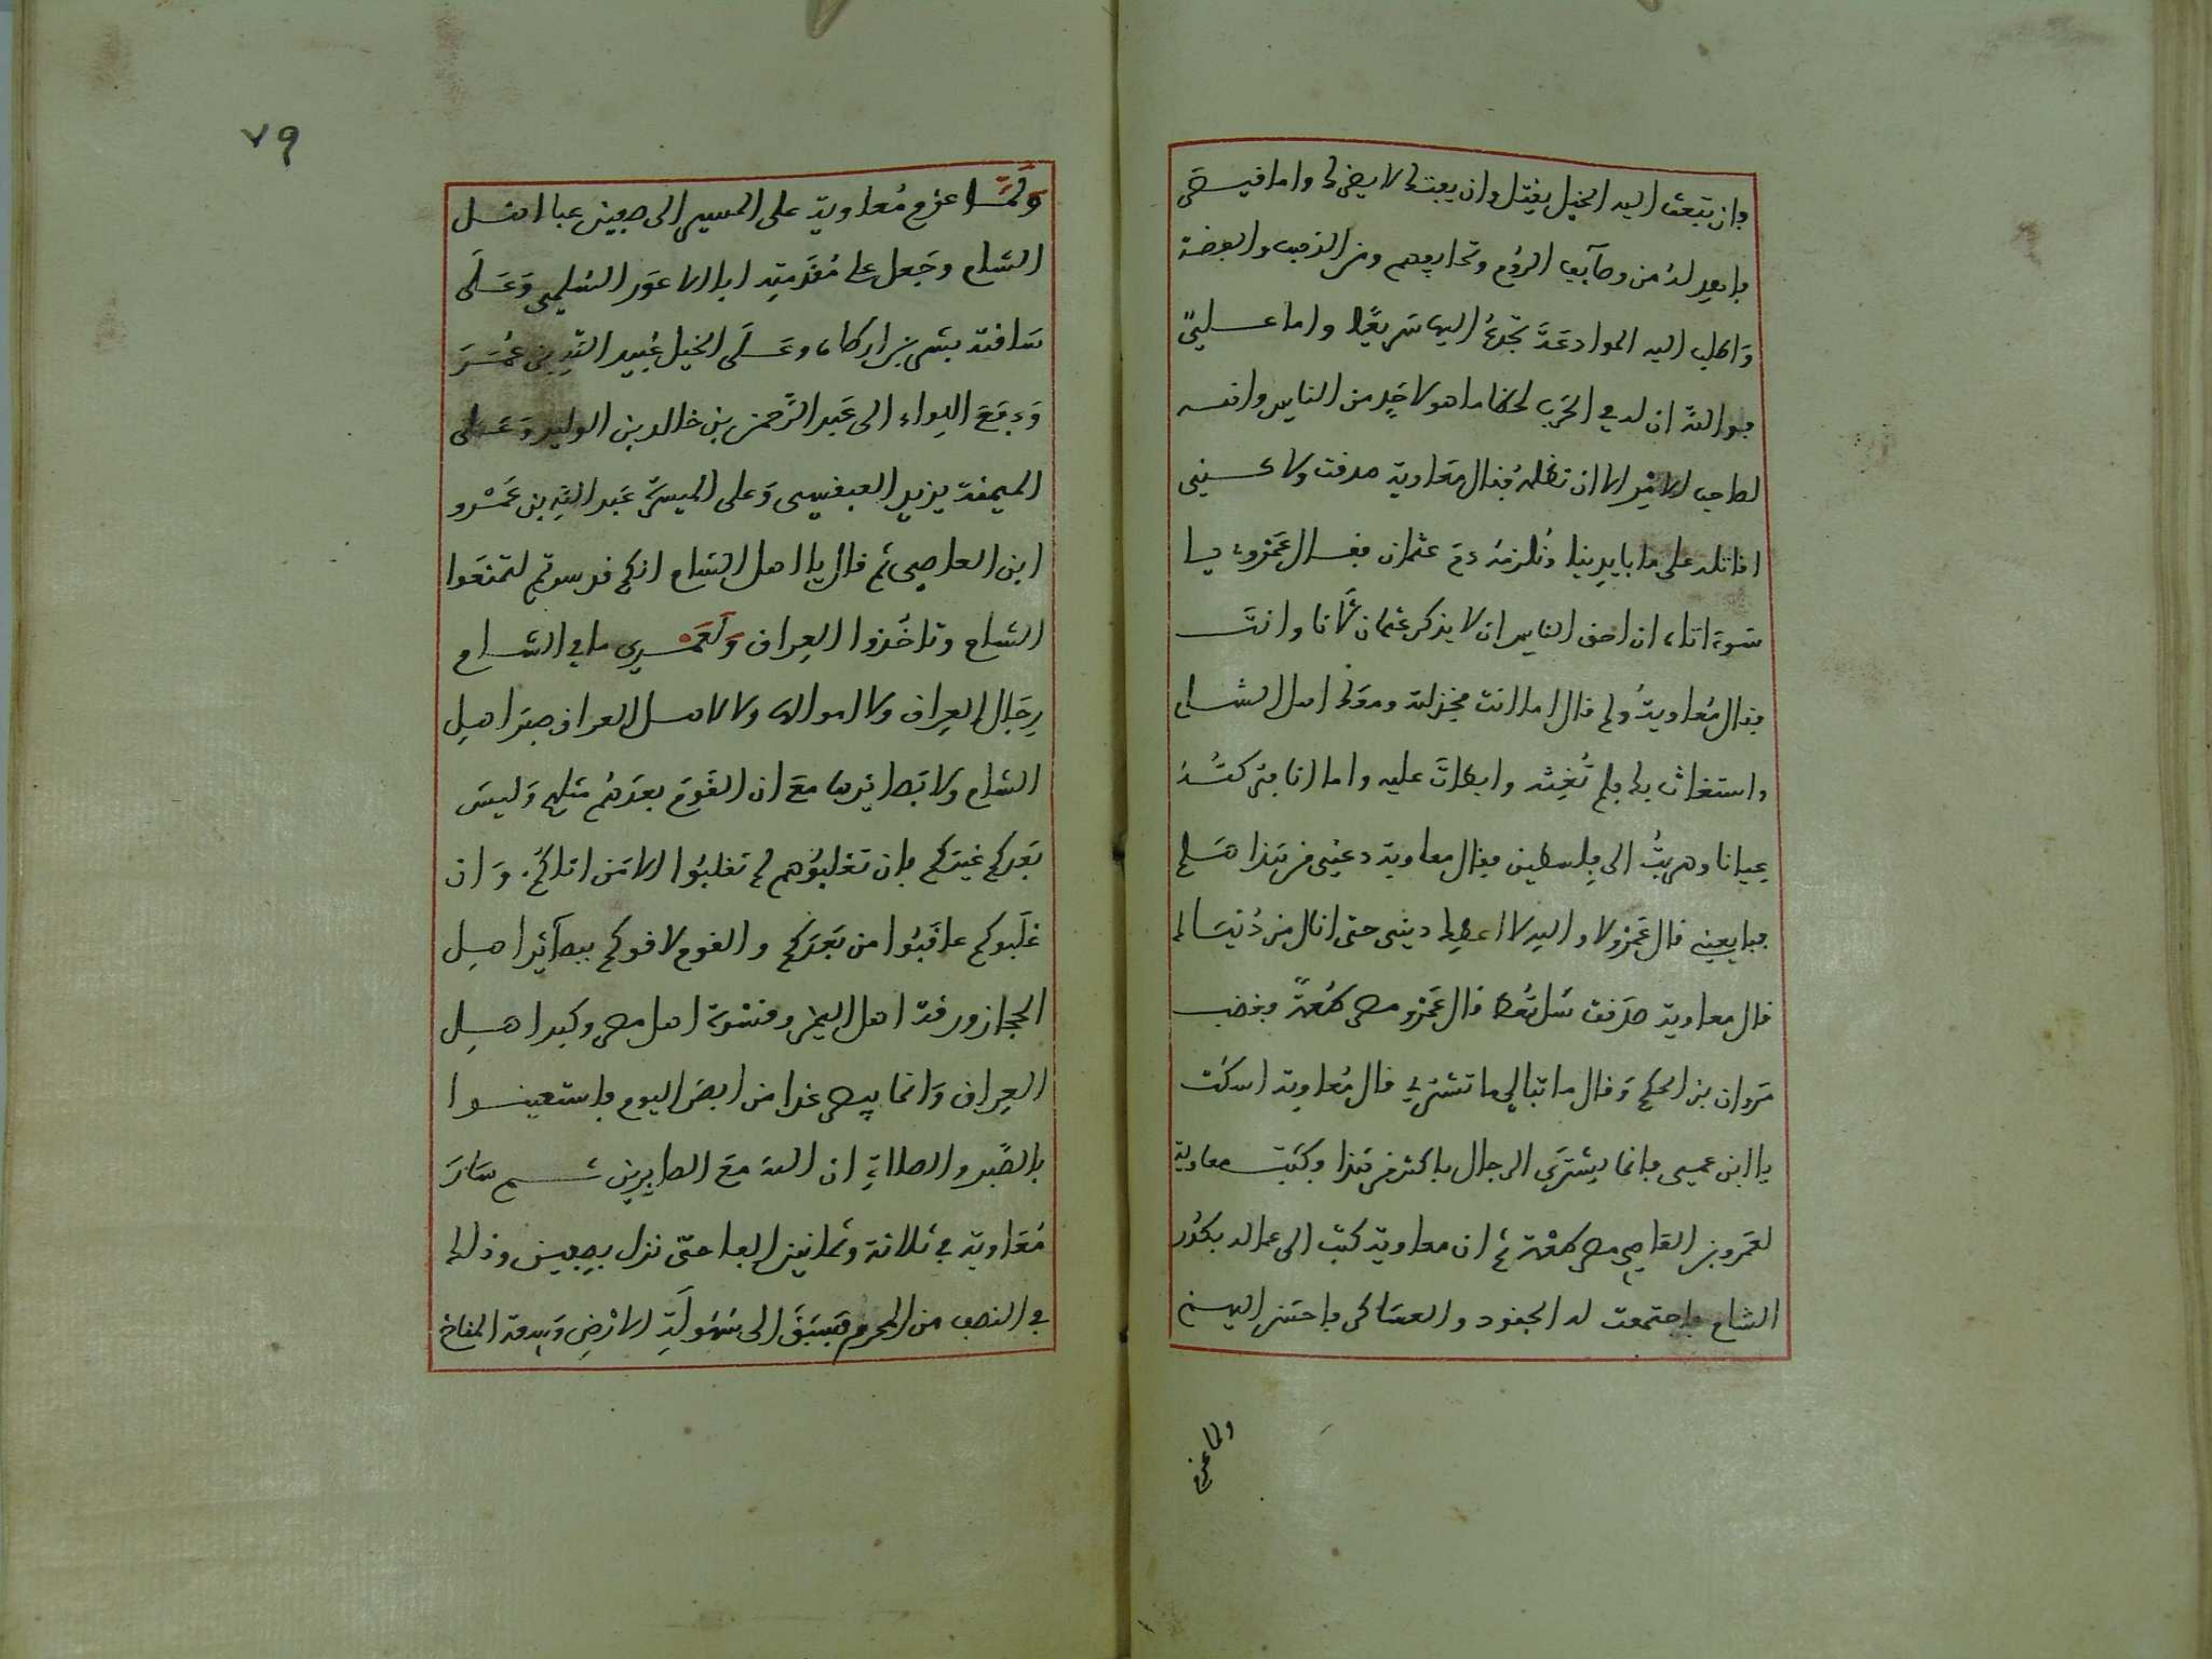 فان تبعث اليه الخيل يقتل وان يفتك لا يضرك واما قيصر
فاهد له من وصآيف الروم وتحايفهم ومن الذهب والفضة
واطلب اليه الموادعة تجده اليها سريعا واما علي
فوالله ان له في الحرب لحظا ما هو لاحد من الناس وانه
لصاحب الامر الا ان تظلمه فقال معاوية صدقت ولاكنني
اقاتله على ما بايدينا ونلزمه دم عثمان فقال عمرو يا
سوءاتاه ان احق الناس ان لا يذكر عثمان لانا وانت
فقال معاوية ولم قال اما انت فخذلته ومعك اهل الشام
واستغاث بك فلم تغثه وابطات عليه واما انا فتركته
عيانا وهربت الى فلسطين فقال معاوية دعني من هذا هلم
فبايعني قال عمرو لا والله لا اعطيك ديني حتى انال من دنياك
قال معاوية صدقت سل تعط قال عمرو مصر طعمة فغضب
مروان بن الحكم وقال ما تبالي ما تشتري قال معاوية اسكت
يا ابن عمي فانما يشترى الرجال باكثر من هذا وكتب معاوية
لعمرو بن العاصي مصر طعمة ثم ان معاوية كتب الى عماله بكور
الشام فاجتمعت له الجنود والعساكر فاحسن اليهم
ولما عزم
٧٩
ولما عزم معاوية على المسير الى صفين عبا اهل
الشام وجعل على مقدمته ابا الاعور السلمي وعلى
ساقته بشر بن ارطاه وعلى الخيل عبيد الله بن عمر
ودفع اللواء الى عبد الرحمن بن خالد بن الوليد وعلى
الميمنة يزيد العبسي وعلى الميسرة عبد الله بن عمرو
ابن العاصي ثم قال يا اهل الشام انكم قد سرتم لتمنعوا
الشام وتاخذوا العراق ولعمري ما في الشام
رجال العراق ولا اموالها ولا لاهل العراق صبر اهل
الشام ولا بصايرها مع ان القوم بعدهم مثلهم وليس
بعدكم غيركم فان تغلبوهم لم تغلبوا الا من اتاكم وان
غلبوكم عاقبوا من بعدكم والقوم لاقوكم ببصآئر اهل
الحجاز ورقة اهل اليمن وقسوة اهل مصر وكيد اهل
العراق وانما يبصر غدا من ابصر اليوم فاستعينوا
بالصبر والصلاة ان الله مع الصابرين ثم سار
معاوية في ثلاثة وثمانين الفا حتى نزل بصفين وذلك
في النصف من المحرم فسبق الى سهولة الارض وسعة المناخ